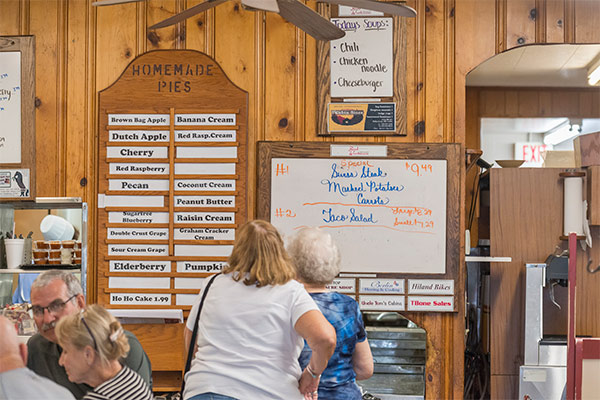 HOMEMADE
PIES
Brown Bag Apple
Dutch Apple
Cherry
Red Raspberry
Pecan
Sugartree
Blueberry
Double Crust Grape
Sour Cream Grape
Elderberry
Ho Ho Cake 1.99
Banana Cream
Red Rasp.Cream
Coconut Cream
Peanut Butter
Raisin Cream
Graham Cracker
Cream
Pumpkin
Todays
Soups
Chili
Chicken
noodle
Cheeseburger
#1
SPECIAL
$9.49
Swiss Steak
Mashed Potatoes
Carrots
#2
Taco Salad
Large
Small
Berlin
Hiland Barn
Uncle Tom's Cabins
Tilone Sales
EX